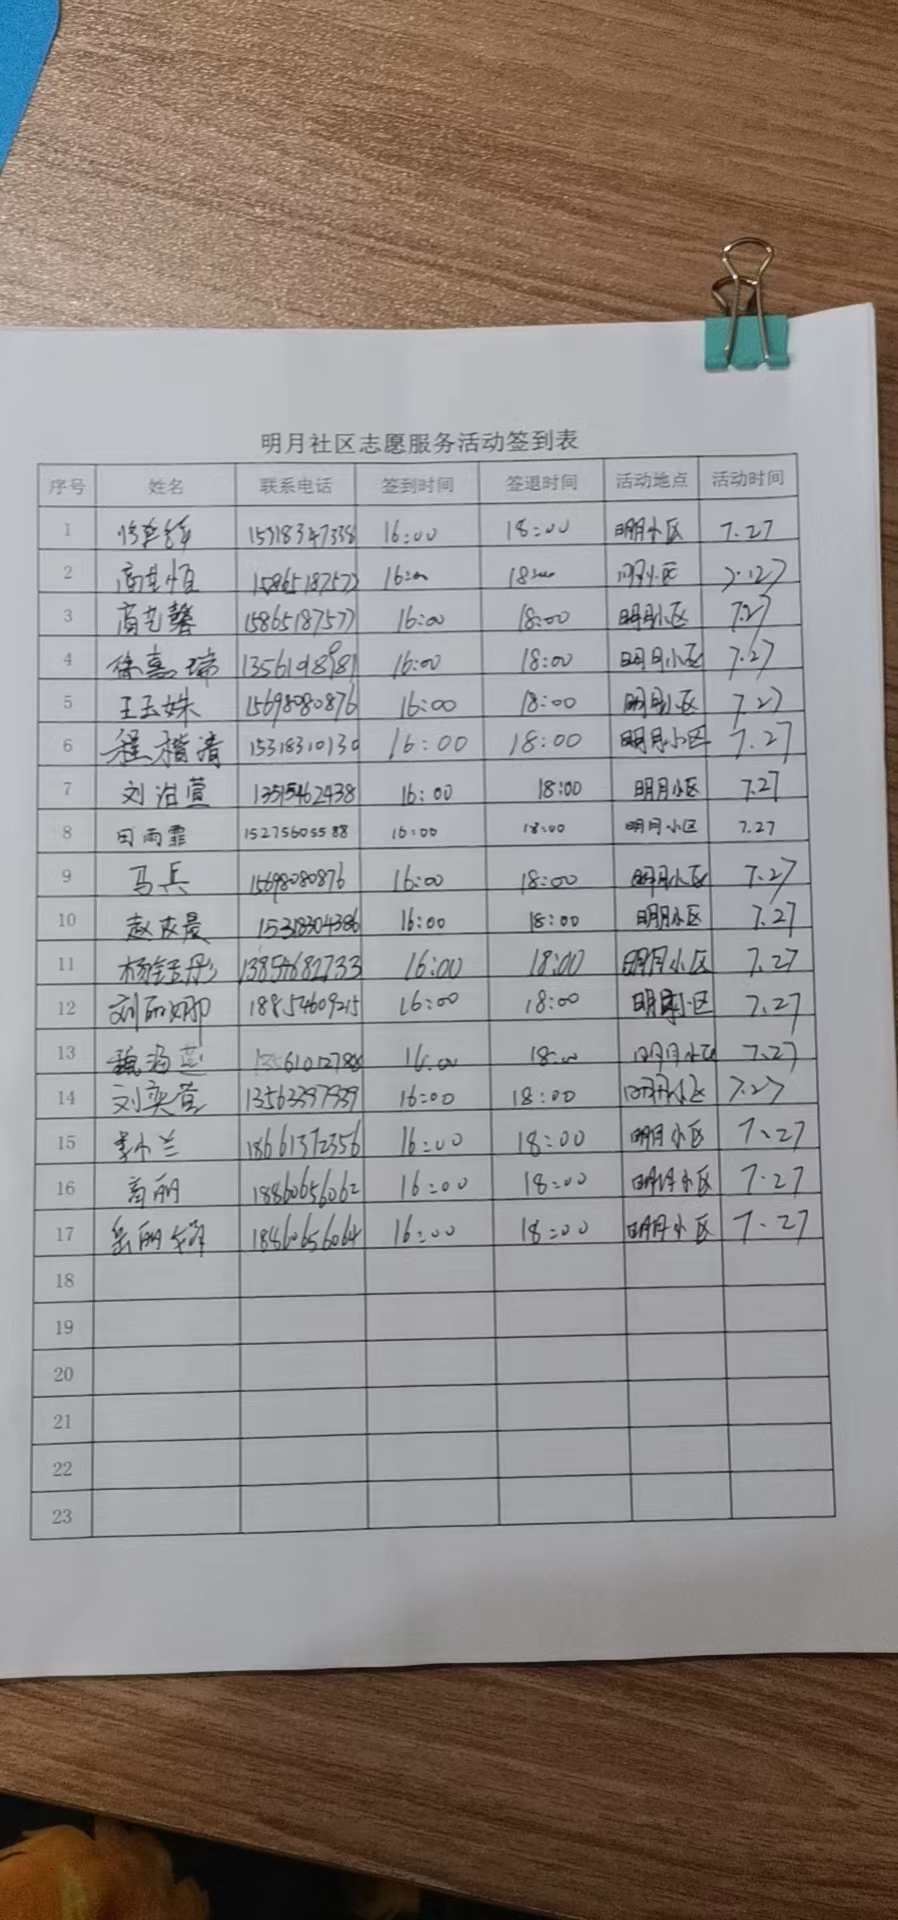 明月社区志愿服务活动签到表
序号 姓名 联系电话 签到时间 签退时间 活动地点 活动时间
1 15318347338 16:00 18:00 明月小区 7.27
2 15865187577 16:00 18:00 明月小区 7.27
3 15865187577 16:00 18:00 明月小区 7.27
4 徐嘉瑞 16:00 18:00 明月小区 7.27
5 王玉姝 15698080876 16:00 18:00 明月小区 7.27
6 程楷清 15318310130 16:00 18:00 明月小区 7.27
7 刘洺萱 13515462438 16:00 18:00 明月小区 7.27
8 田雨霏 15275605588 16:00 18:00 明月小区 7.27
9 马兵 15698080876 16:00 18:00 明月小区 7.27
10 15318304386 16:00 18:00 明月小区 7.27
11 13854682733 16:00 18:00 明月小区 7.27
12 刘丽娜 18854609215 16:00 18:00 明月小区 7.27
13 16:00 18:00 明月小区 7.27
14 刘奕萱 16:00 18:00 明月小区 7.27
15 李小兰 18661372356 16:00 18:00 明月小区 7.27
16 高丽 18860656062 16:00 18:00 明月小区 7.27
17 18860656064 16:00 18:00 明月小区 7.27
18
19
20
21
22
23